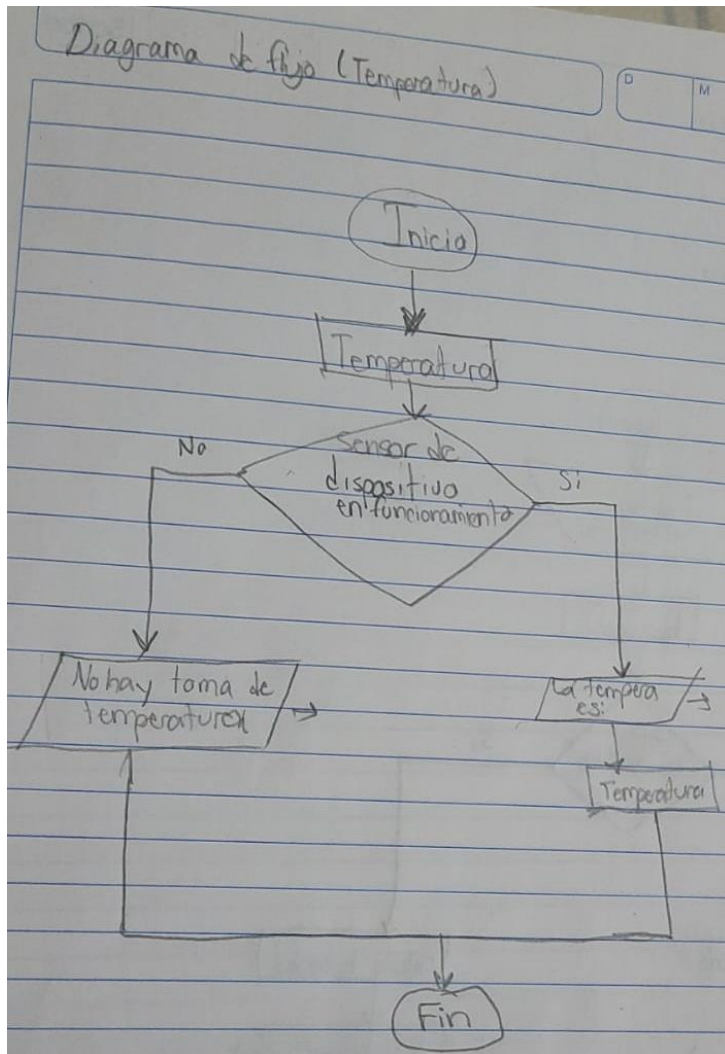 Diagrama de flujo (Temperatura)
D
M
Inicio
Temperatura
Sensor de
dispositivo
en funcionamiento
No
Si
No hay toma de
temperatura
La tempera
es:
Temperatura
Fin